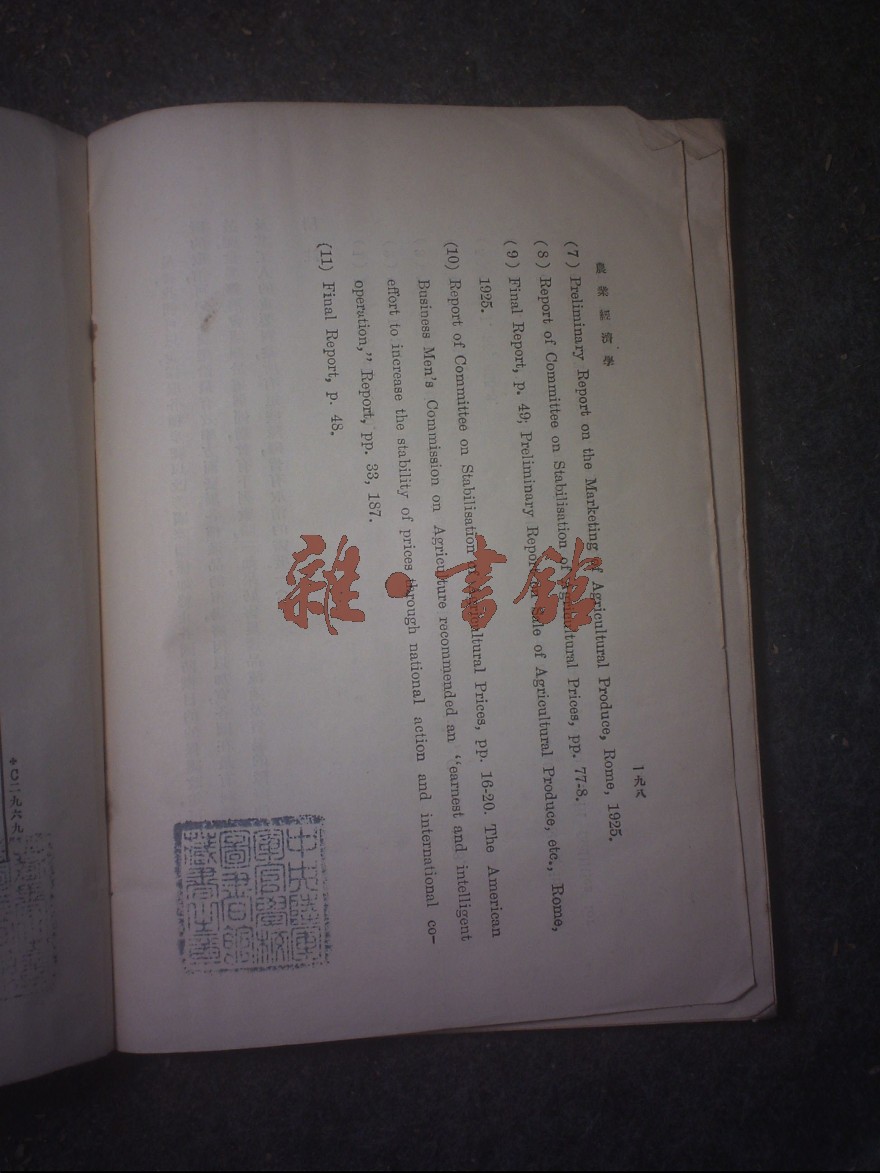 農業經濟學
一九八
(7) Preliminary Report on the Marketing of Agricultural Produce, Rome, 1925.
(8) Report of Committee on Stabilisation of Agricultural Prices, pp. 77-8.
(9) Final Report, p. 49; Preliminary Report on Sale of Agricultural Produce, etc., Rome,
1925.
(10) Report of Committee on Stabilisation of Agricultural Prices, pp. 16-20. The American
Business Men's Commission on Agriculture recommended an “earnest and intelligent
effort to increase the stability of prices through national action and international co-
operation,” Report, pp. 33, 187.
(11) Final Report, p. 48.
雜·書館